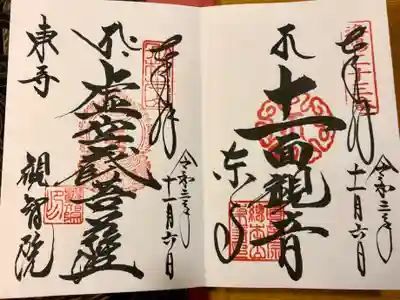 奉拝
令和三年
十一月六日
十一面観音
東寺
奉拝
令和三年
十一月六日
虚空蔵菩薩
東寺
観智院